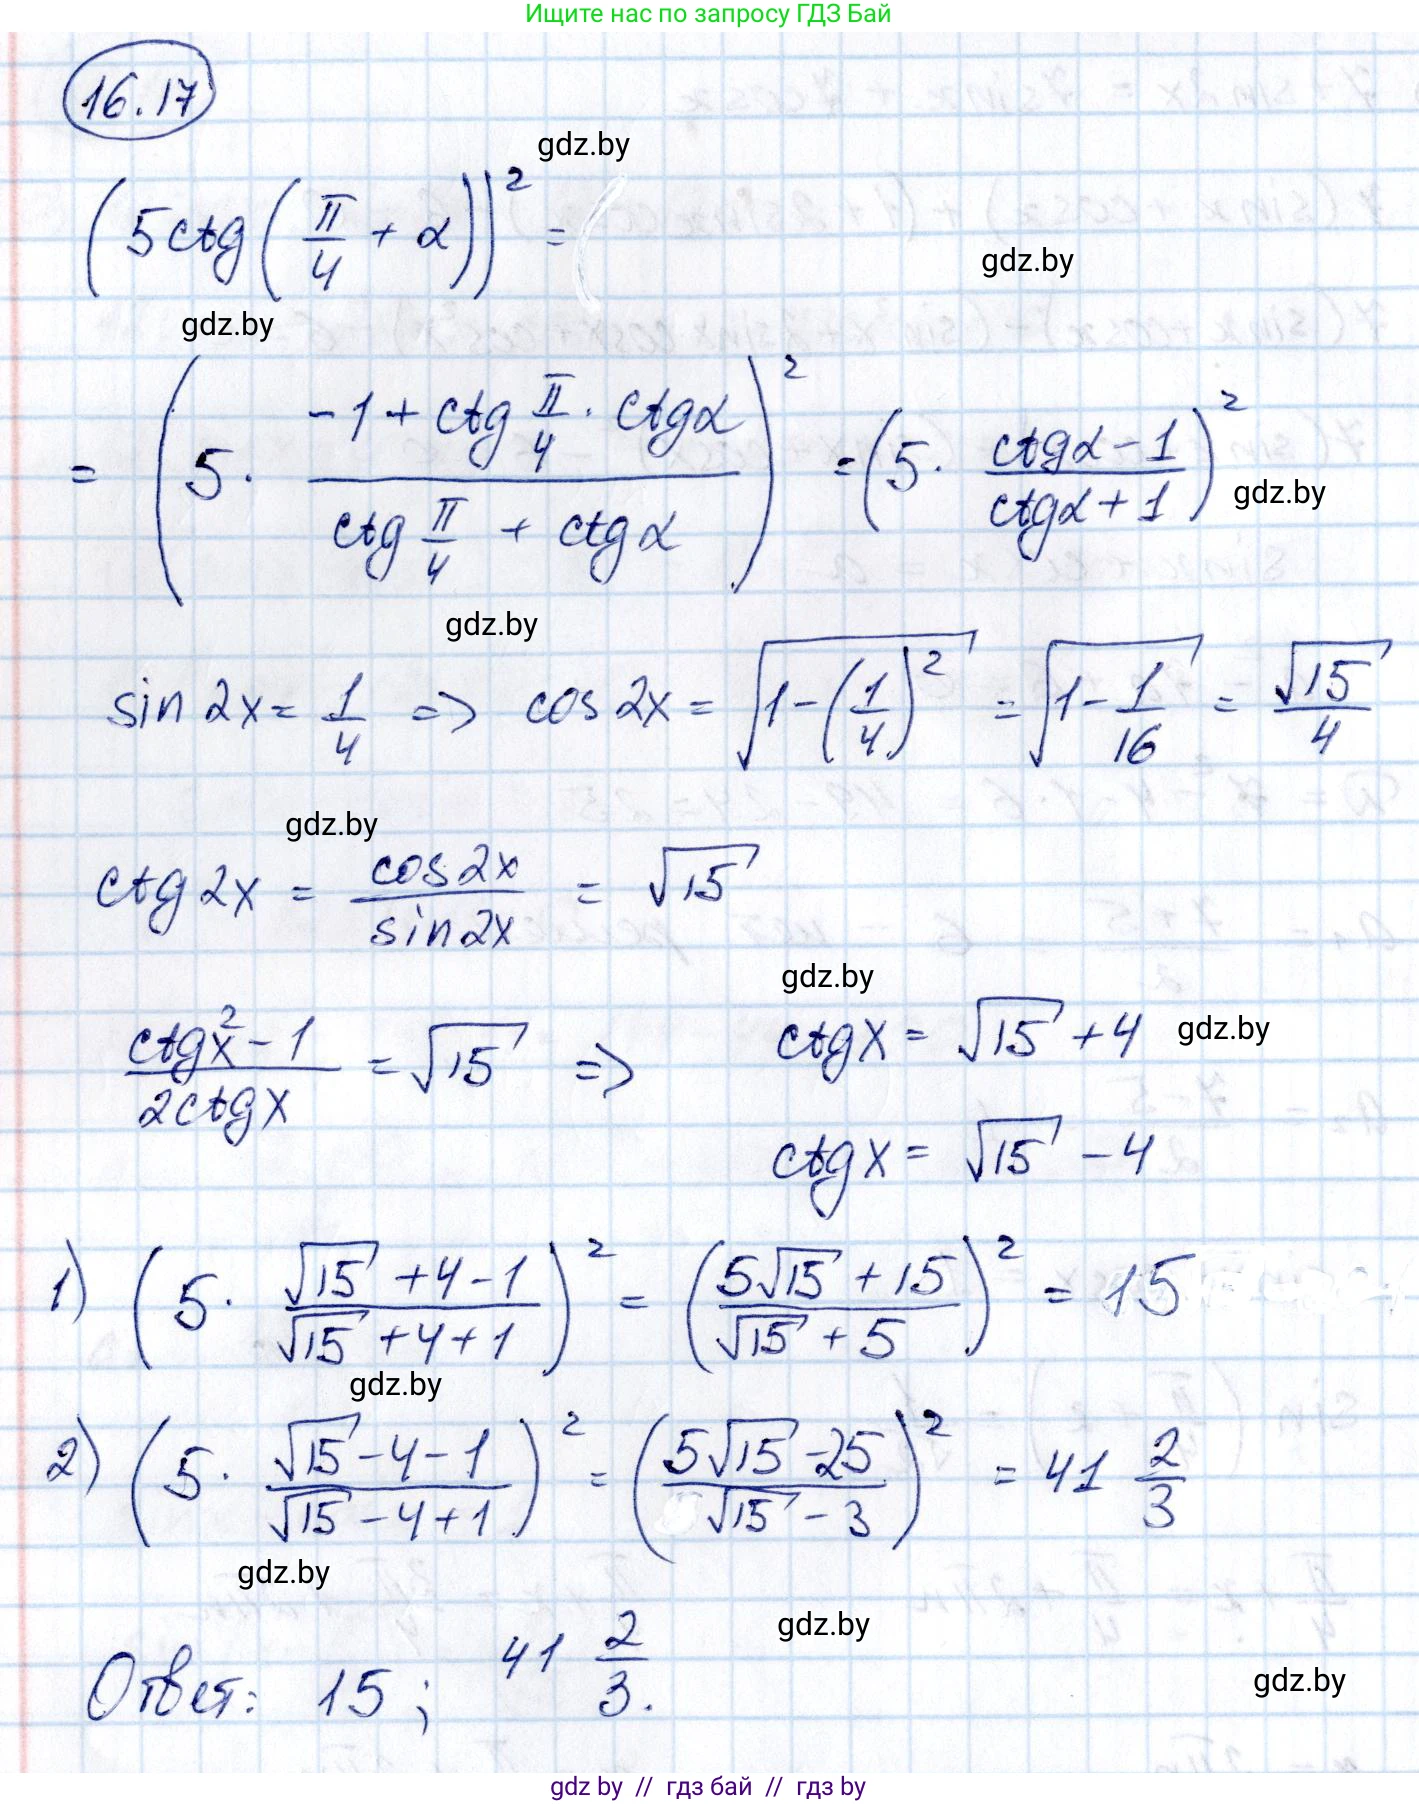 Ищите нас по запросу ГДЗ Бай
16.17
gdz.by
(5ctg(π/4 + α))² =
gdz.by
gdz.by
= (5 · (-1 + ctg π/4 · ctgα)/(ctg π/4 + ctgα))² = (5 · (ctgα - 1)/(ctgα + 1))²
gdz.by
gdz.by
sin 2x = 1/4 => cos 2x = √(1-(1/4)²) = √(1 - 1/16) = √15/4
gdz.by
ctg 2x = cos 2x/sin 2x = √15
gdz.by
(ctgx² - 1)/(2ctgx) = √15 => ctgx = √15 + 4
gdz.by
ctgx = √15 - 4
1) (5 · (√15 + 4 - 1)/(√15 + 4 + 1))² = ((5√15 + 15)/(√15 + 5))² = 15
gdz.by
2) (5 · (√15 - 4 - 1)/(√15 - 4 + 1))² = ((5√15 - 25)/(√15 - 3))² = 41 2/3
gdz.by
gdz.by
Ответ: 15; 41 2/3.
gdz.by
gdz by // гдз бай // гдз by